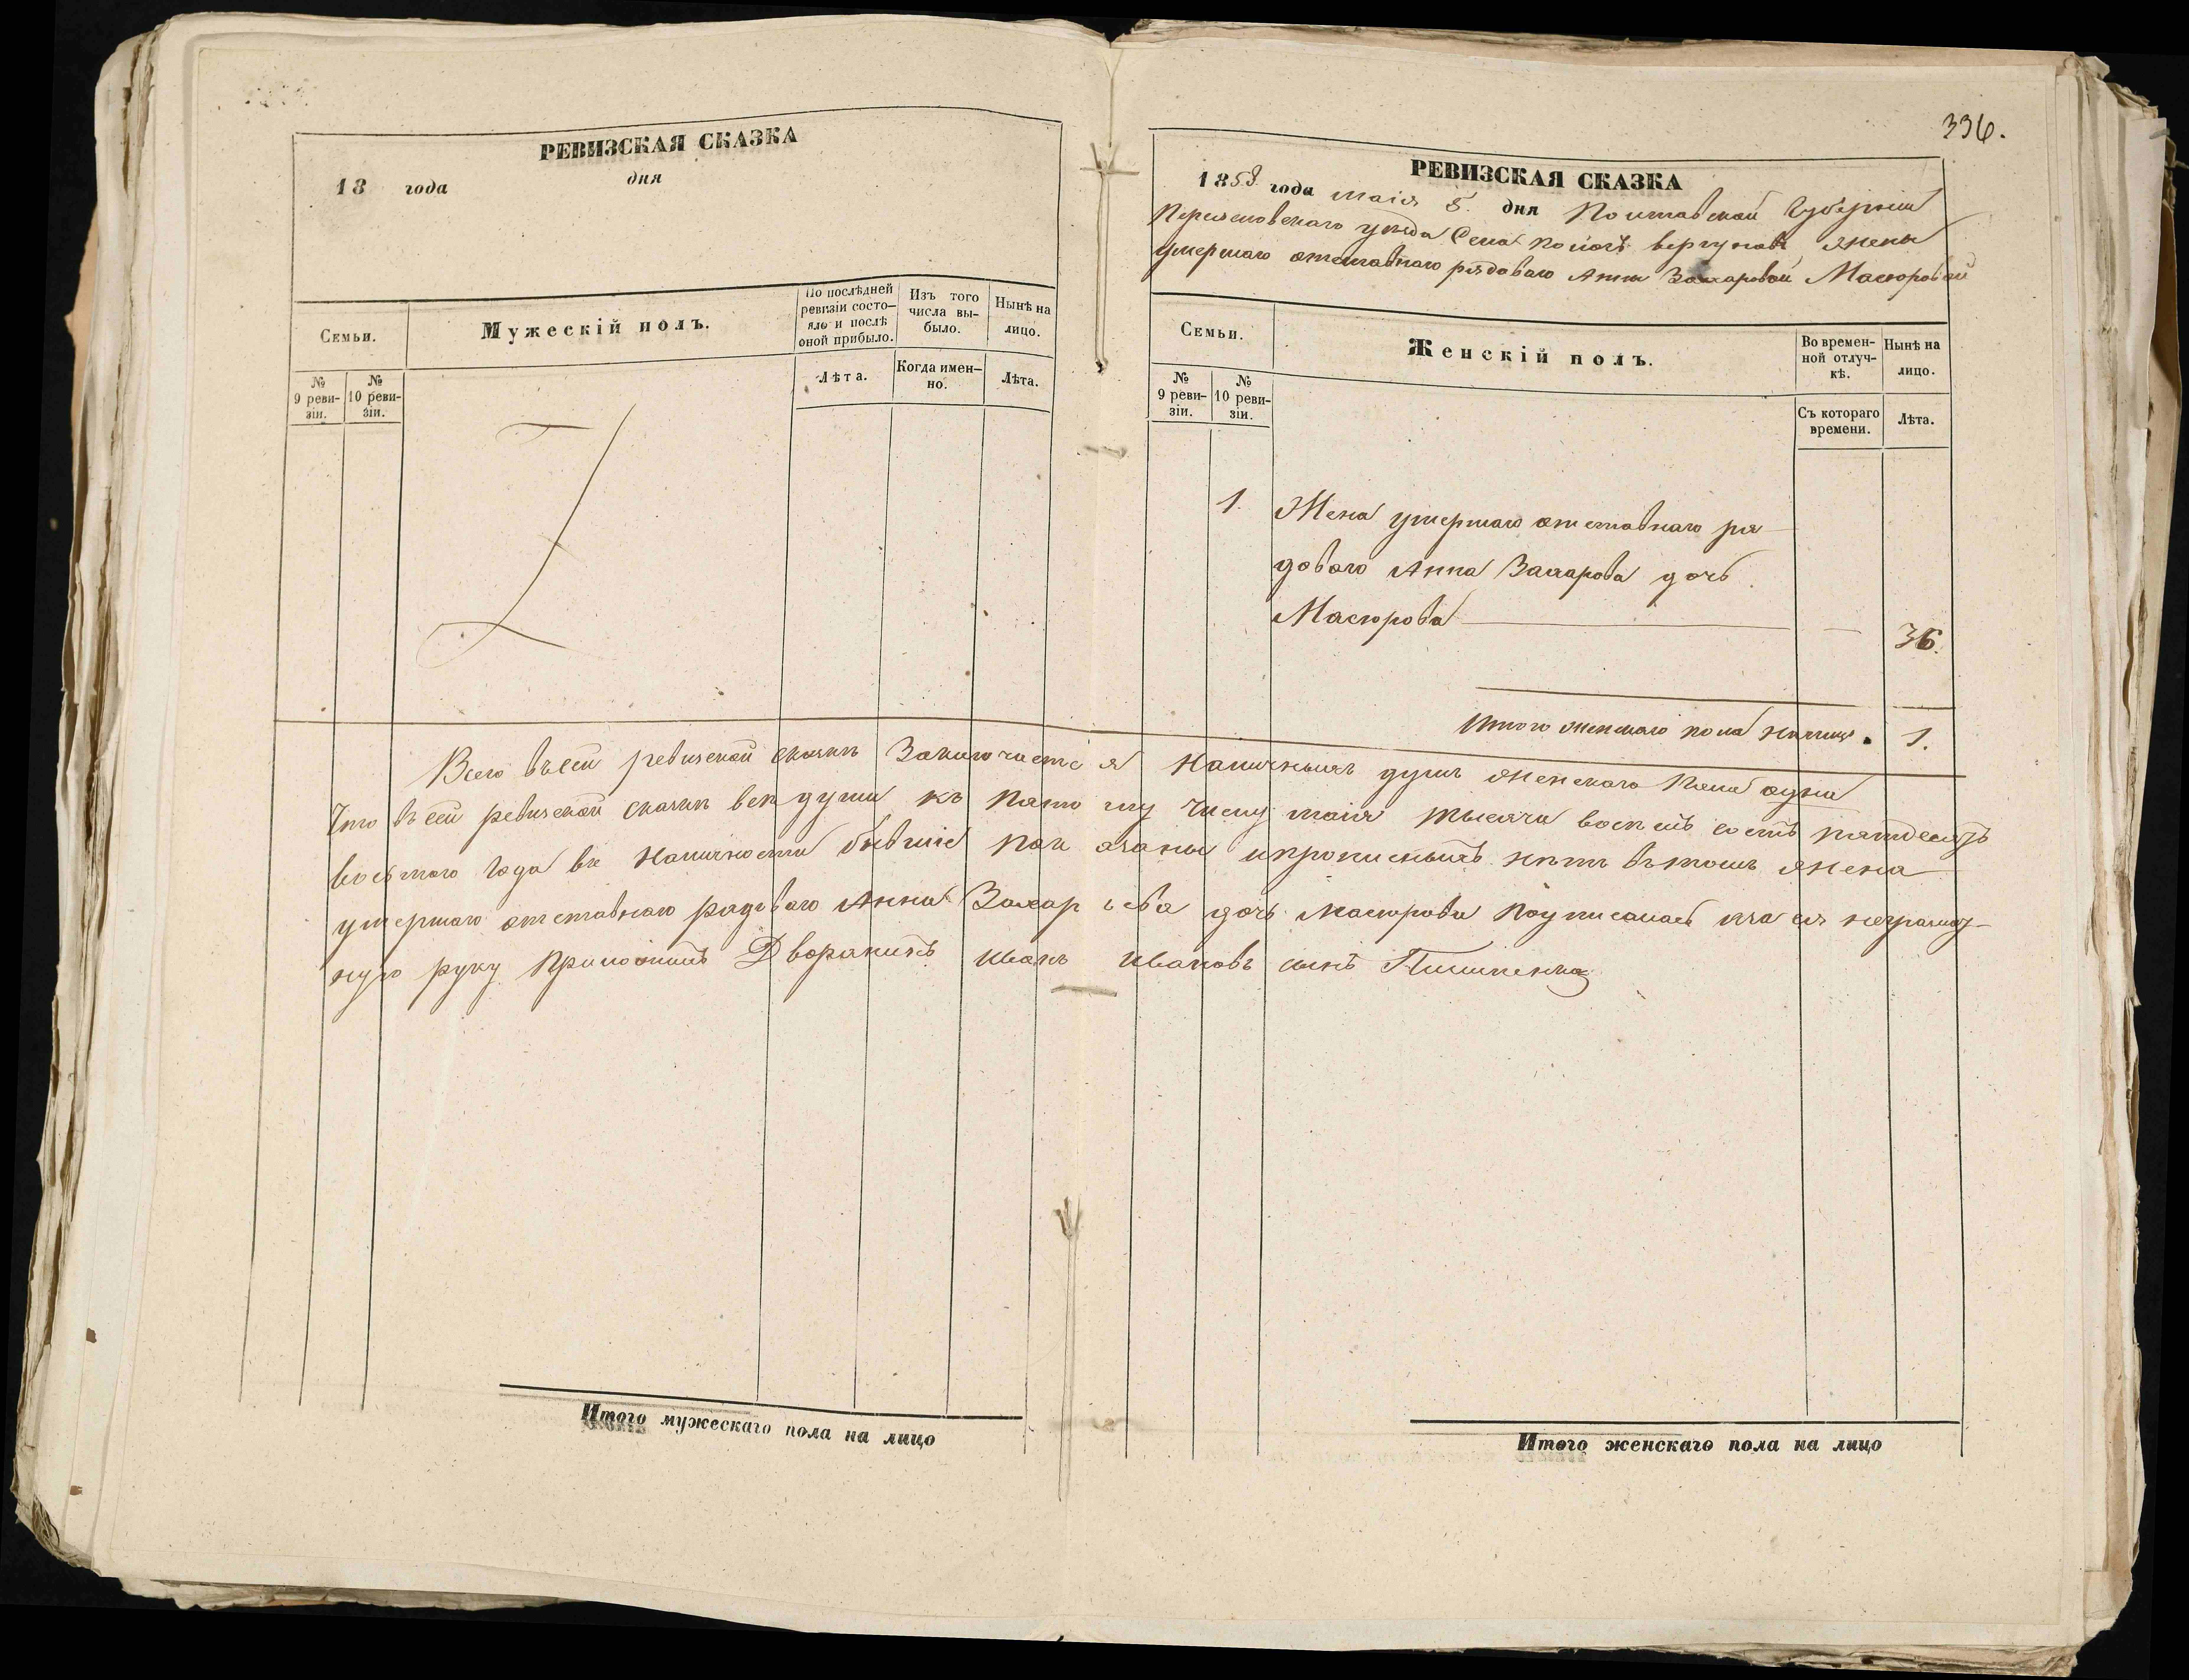 РЕВИЗСКАЯ СКАЗКА
18 года дня
Семьи.
Мужескій полъ.
По послѣдней ревизіи состояло и послѣ оной прибыло.
Изъ того числа выбыло.
Нынѣ на лицо.
№ 9 ревизіи.
№ 10 ревизіи.
Лѣта.
Когда именно.
Лѣта.
Итого мужескаго пола на лицо
336.
РЕВИЗСКАЯ СКАЗКА
1858 года маія 5. дня Полтавской Губерніи
уѣзда Села жены
умершаго отставнаго рядоваго Анны Захаровой Масюровой
Семьи.
Женскій полъ.
Во временной отлучкѣ.
Нынѣ на лицо.
№ 9 ревизіи.
№ 10 ревизіи.
Съ котораго времени.
Лѣта.
1. Жена умершаго отставнаго ря
доваго Анна Захарова дочь
Масюрова — 36.
Итого женскаго пола на лицо. 1.
Всего въ сей ревизской сказкѣ Заключается Наличныхъ душъ женскаго Пола одна
Что въ сей ревизской сказкѣ все души къ пято му числу маія тысяча восемь сотъ пятдесятъ
восьмого Года въ Наличности бывшіе пок азаны ипрописныхъ нѣтъ вътомъ жена
умершаго отставнаго рядоваго Анна Захар ьева дочь Масюрова Подписалась аза ея неграмот-
ную руку Приложилъ Дворянинъ Иванъ Ивановъ сынъ
Итого женскаго пола на лицо